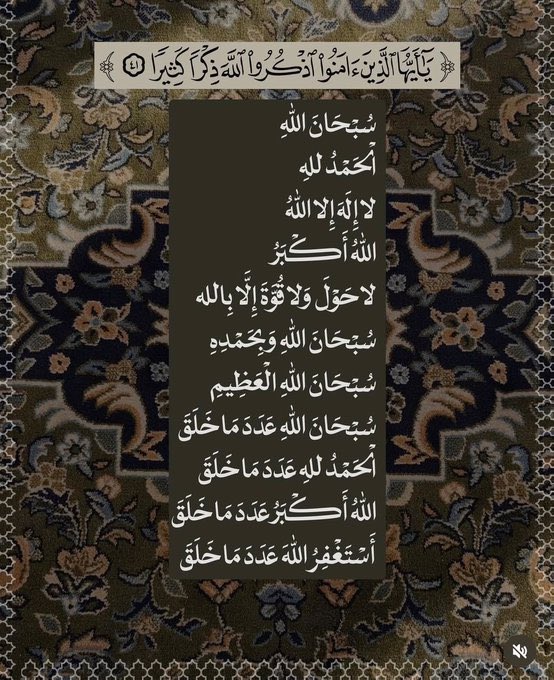 ﴿ يَٰٓأَيُّهَا ٱلَّذِينَ ءَامَنُوا۟ ٱذْكُرُوا۟ ٱللَّهَ ذِكْرًا كَثِيرًا ٤١ ﴾
سُبْحَانَ اللهِ
اَلْحَمْدُ للهِ
لا إِلَهَ إِلا اللهُ
اللهُ أَكْبَرُ
لا حَوْلَ وَلا قُوَّةَ إِلَّا بِالله
سُبْحَانَ اللهِ وَبِحَمْدِهِ
سُبْحَانَ اللهِ الْعَظِيمِ
سُبْحَانَ اللهِ عَدَدَ مَا خَلَقَ
اَلْحَمْدُ للهِ عَدَدَ مَا خَلَقَ
اللهُ أَكْبَرُ عَدَدَ مَا خَلَقَ
أَسْتَغْفِرُ اللهَ عَدَدَ مَا خَلَقَ